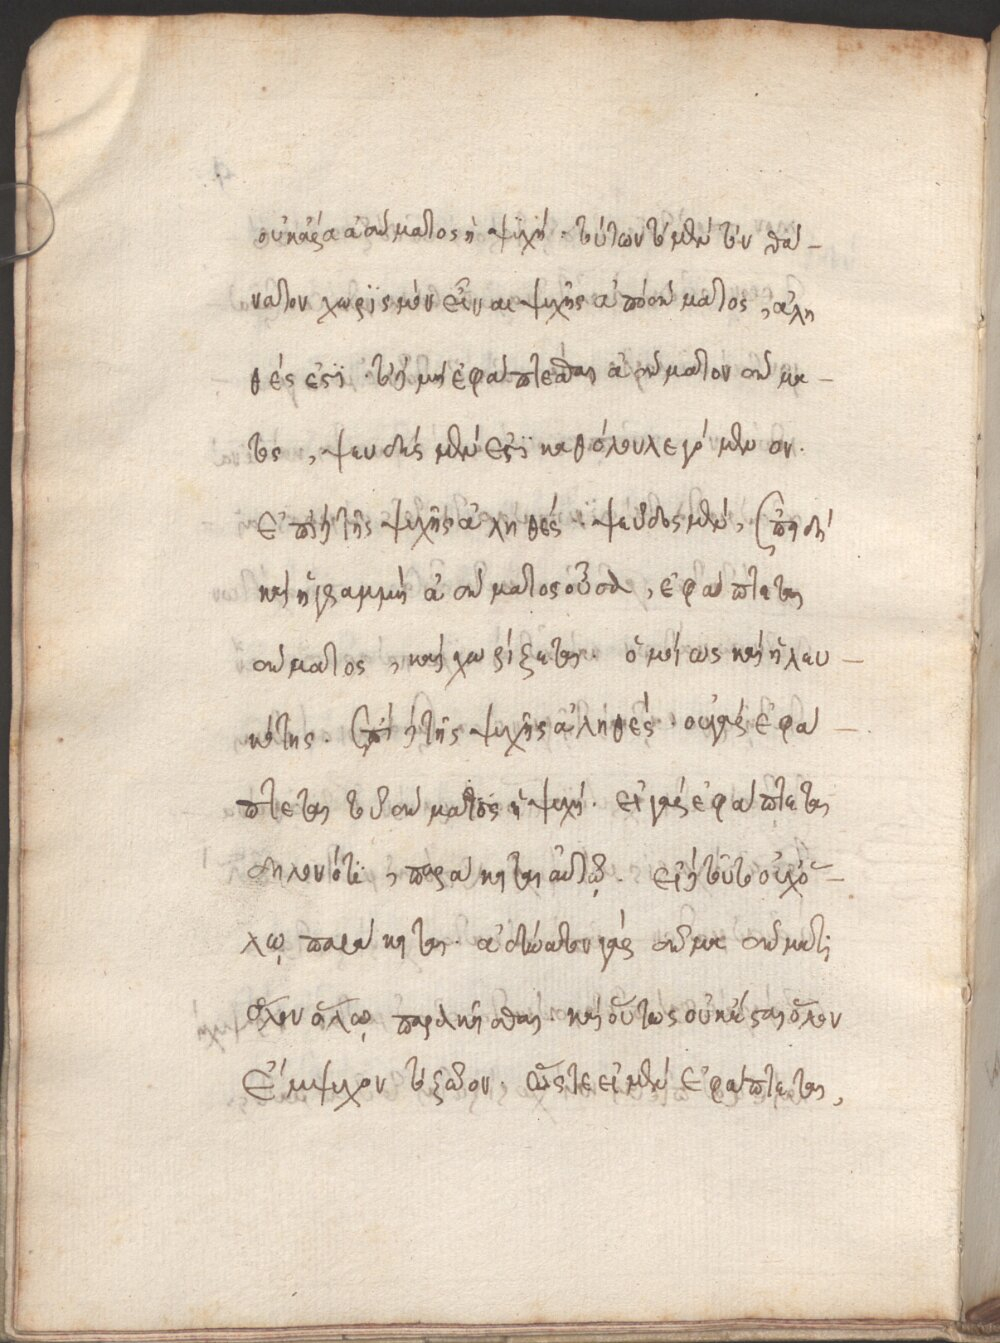 οὐκ ἄρα ἀσώματος ἡ ψυχή. τούτων τὸ μὲν τὸν θά–
νατον χωρισμὸν εἶναι ψυχῆς ἀπὸ σώματος, ἀλη
θές ἐστϊ. τὸ δὲ μὴ ἐφάπτεσθαι ἀσώματον σώμα–
τος, ψευδὲς μὲν ἐστϊ καθόλου λεγόμενον.
ἐπὶ δὲ τῆς ψυχῆς ἀληθές. ψεῦδος μὲν, ἐπειδὴ
καὶ ἡ γραμμὴ ἀσώματος οὖσα, ἐφάπτεται
σώματος, καὶ χωρίζεται. ὁμοίως καὶ ἡ λευ–
κότης. ἐπὶ δὲ τῆς ψυχῆς ἀληθές. οὐ γὰρ ἐφά–
πτεται τοῦ σώματος ἡ ψυχή. εἰ γὰρ ἐφάπτεται
δηλονότϊ, παράκειται αὐτῷ. εἰ δὲ τοῦτο οὐχ ὅ–
λῳ παράκειται. ἀδύνατον γὰρ σῶμα σώματι
ὅλον ὅλῳ παρακεῖσθαι. καὶ οὕτως οὐκ ἔσται ὅλον
ἔμψυχον τὸ ζῶον. ὥστε εἰ μὲν ἐφάπτεται,